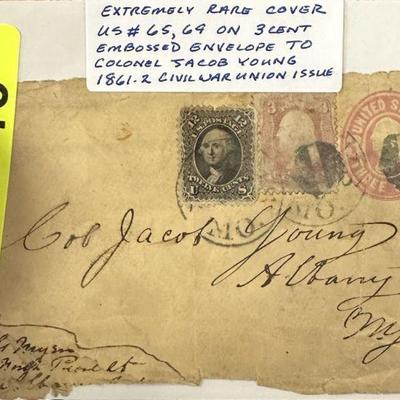 EXTREMELY RARE COVER
US # 65, 69 ON 3 CENT
EMBOSSED ENVELOPE TO
COLONEL JACOB YOUNG
1861-2 CIVIL WAR UNION ISSUE
12 12
U.S. POSTAGE
TWELVE CENTS
U S
3
UNITED S
THREE
MO.
MO.
Col Jacob Young
Albany